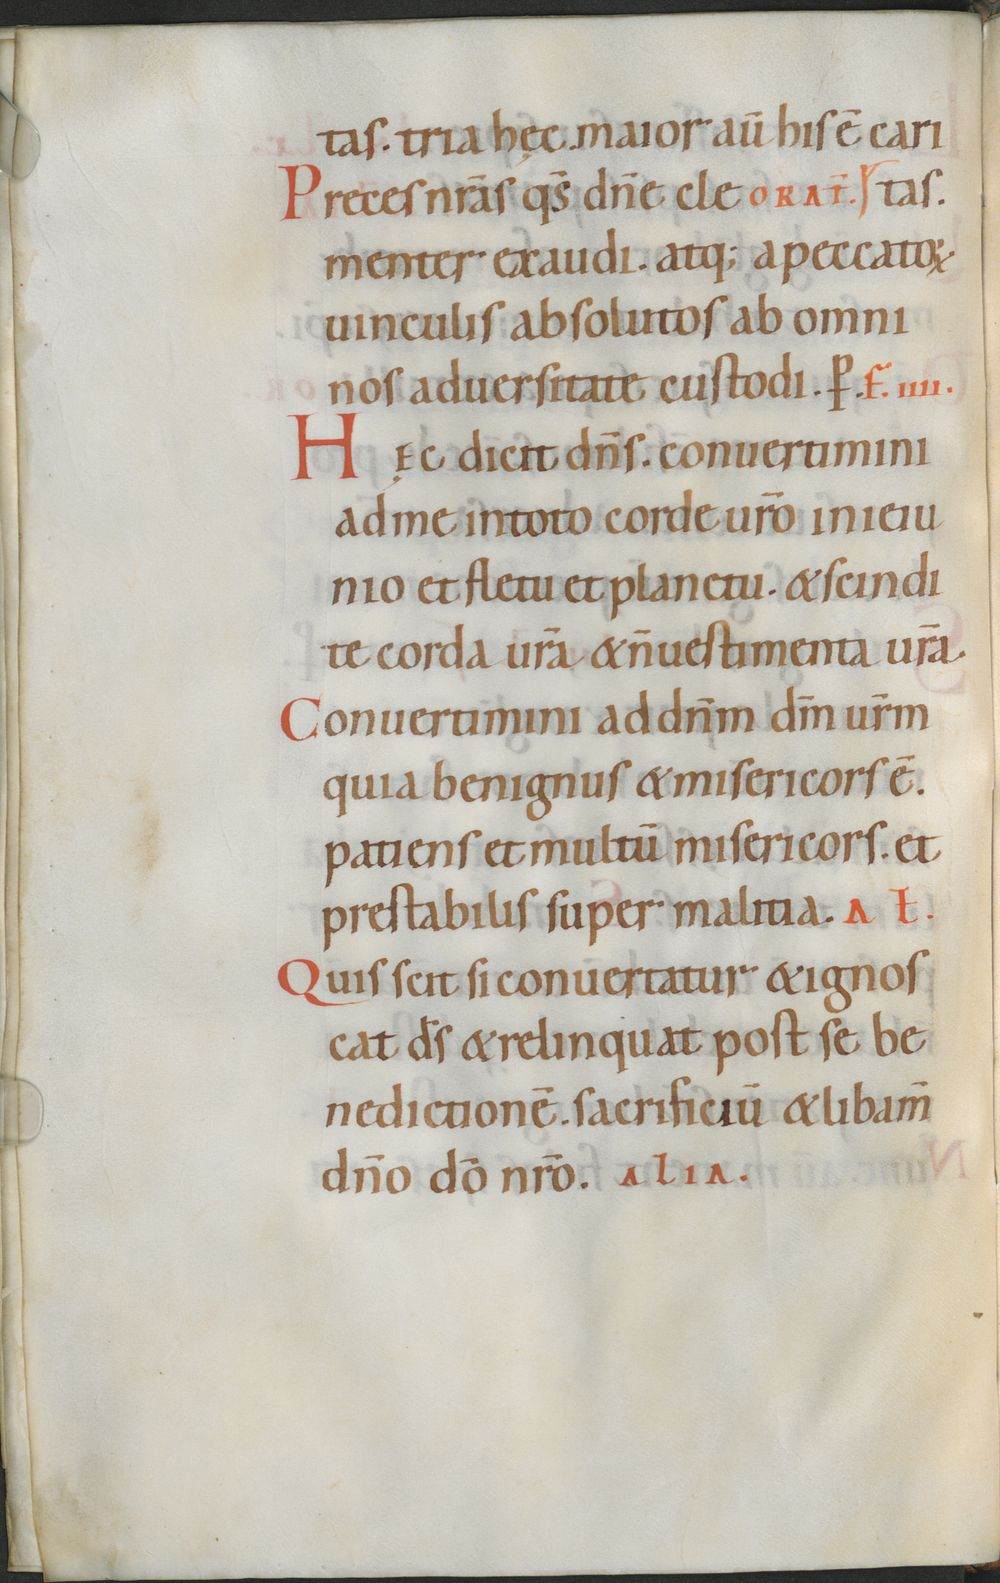 tas. tria hęc. maior aū his ē cari
Preces nr̄as qs̄ dn̄e cle ORAT̄. tas.
menter exaudi. atq; a peccatoꝝ
uinculis absolutos ab omni
nos aduersitate custodi. P. F. IIII.
Hęc dicit dn̄s. conuertimini
ad me in toto corde ur̄o in ieiu
nio et fletu et planctu. & scindi
te corda ur̄a & n̄ uestimenta ur̄a.
Conuertimini ad dn̄m dm̄ ur̄m
quia benignus & misericors ē.
patiens et multū misericors. et
prestabilis super malitia. A Ł.
Quis scit si conuertatur & ignos
cat ds̄ & relinquat post se be
nedictionē. sacrificiū & libam̄
dn̄o dō nr̄o. ALIA.